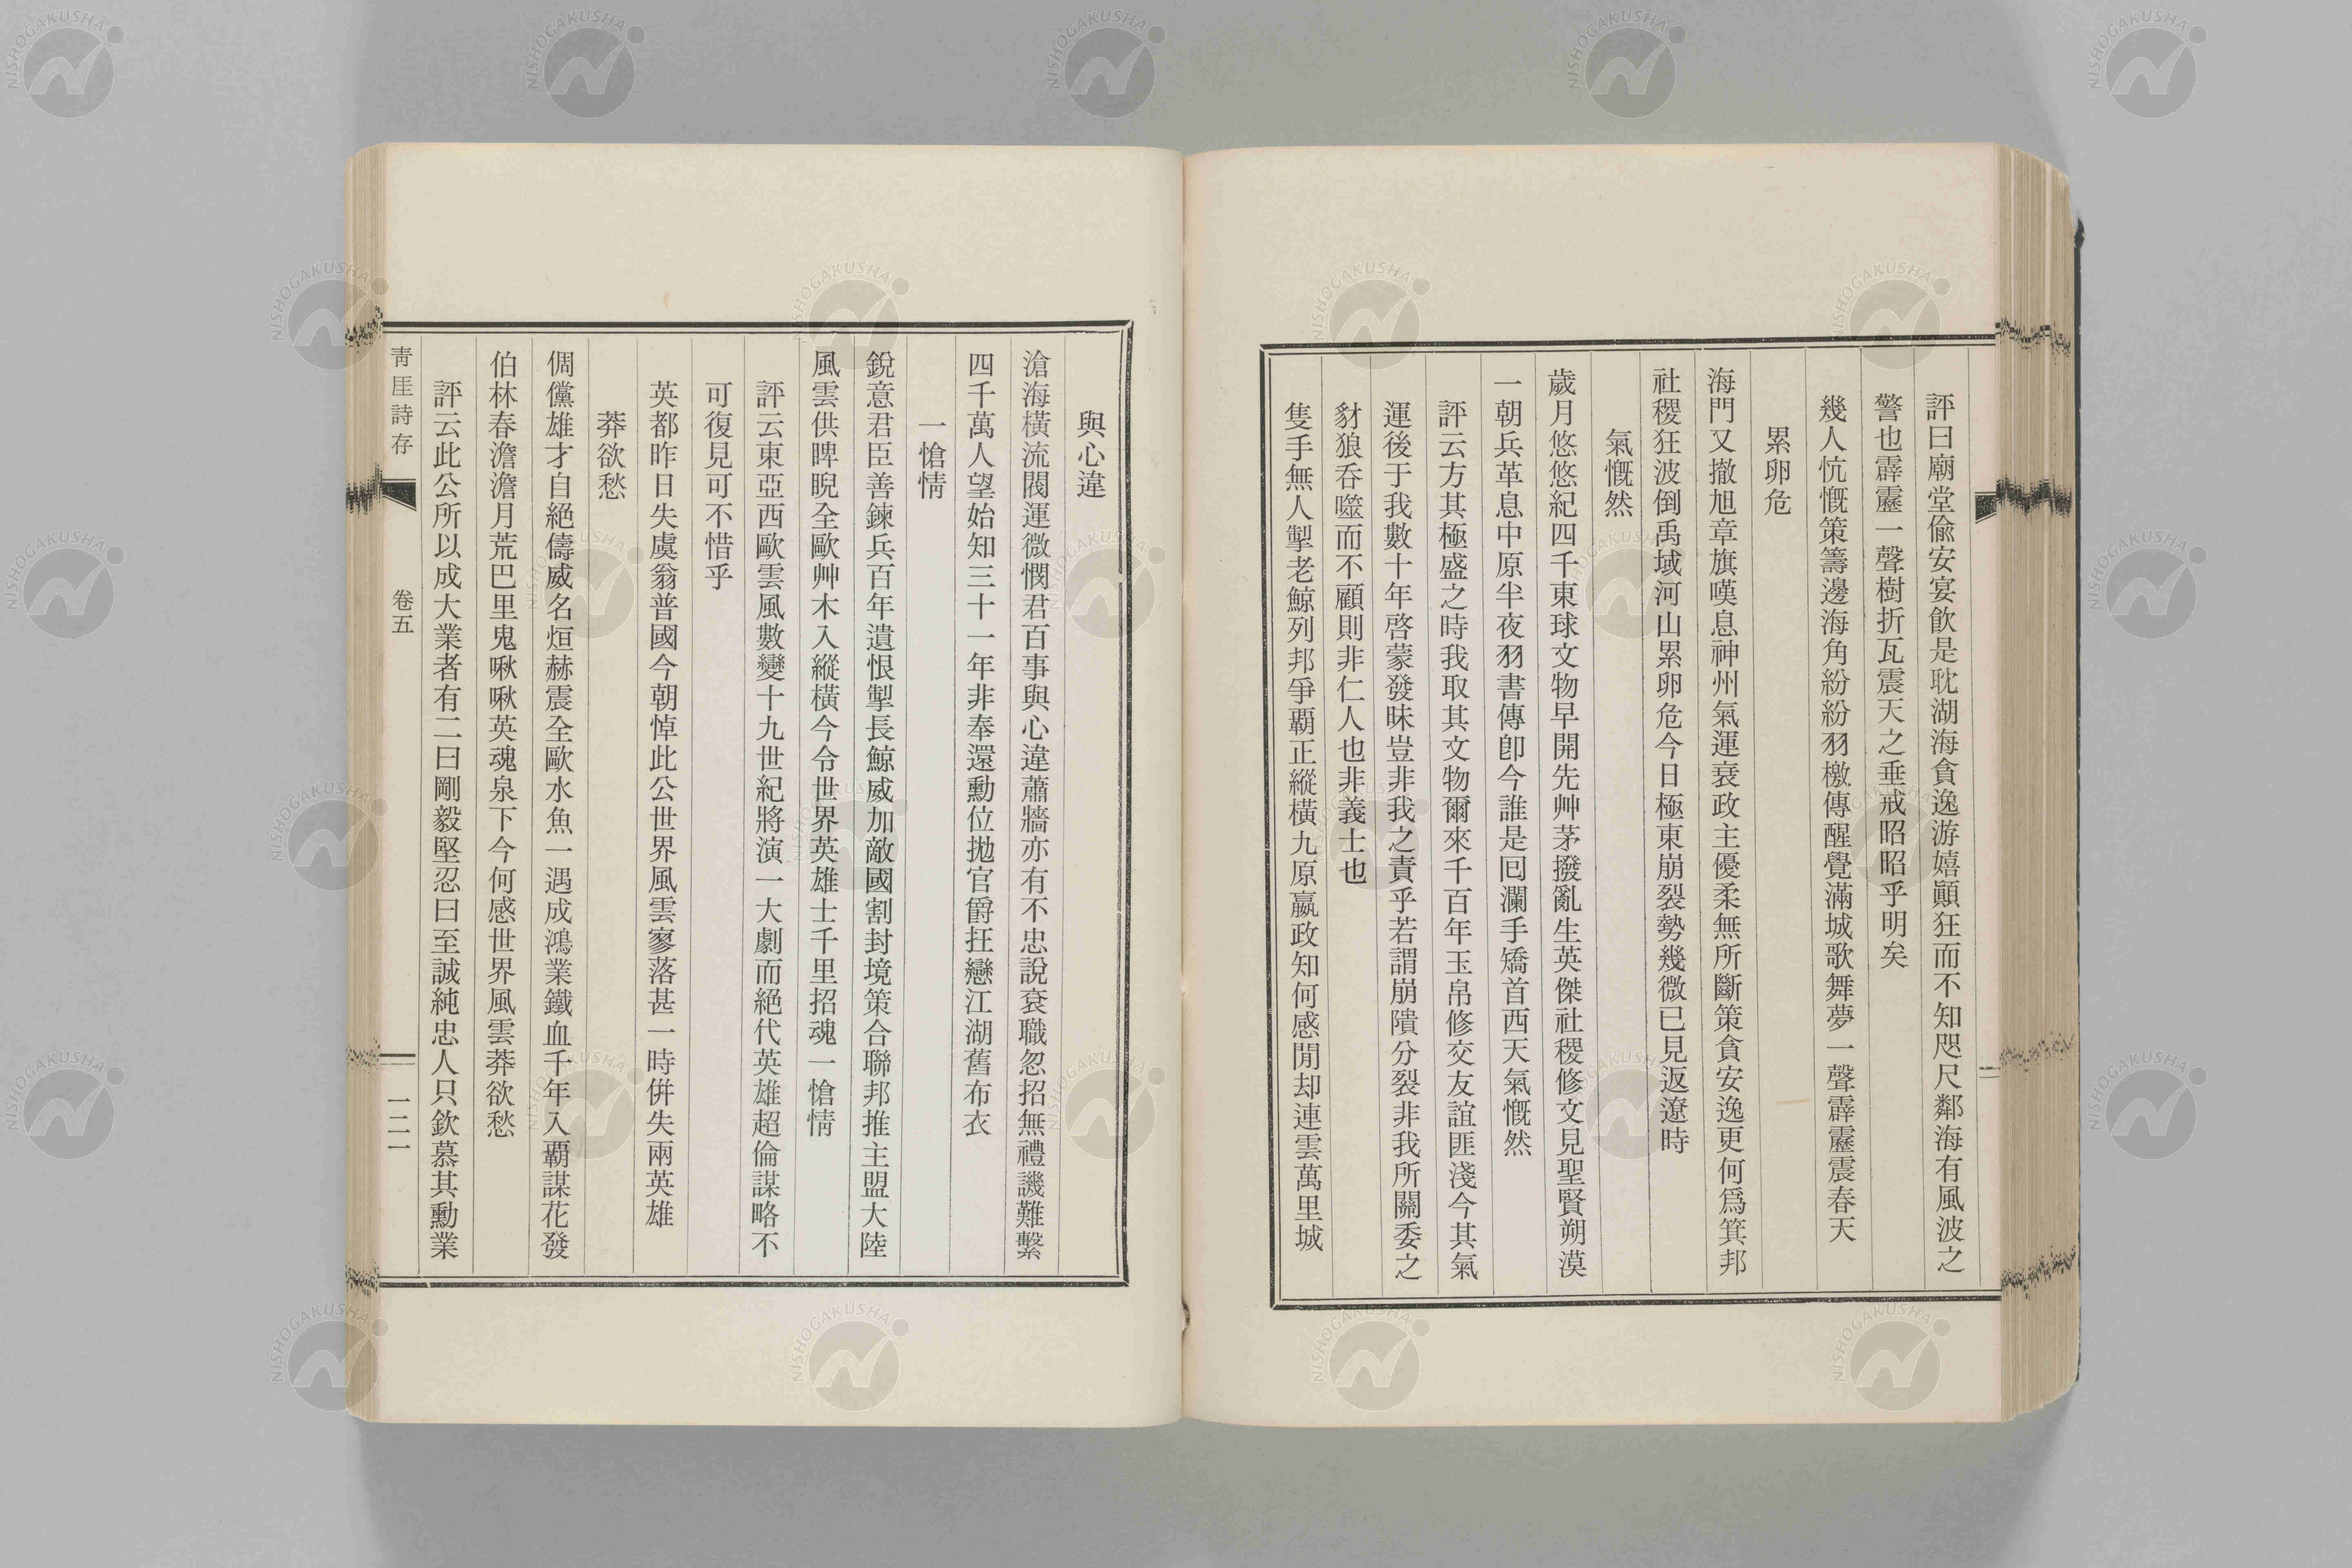 評曰廟堂偸安宴飮是耽湖海貪逸游嬉顚狂而不知咫尺鄰海有風波之
警也霹靂一聲樹折瓦震天之垂戒昭昭乎明矣
幾人忼慨策籌邊海角紛紛羽檄傳醒覺滿城歌舞夢一聲霹靂震春天
累卵危
海門又撤旭章旗嘆息神州氣運衰政主優柔無所斷策貪安逸更何爲箕邦
社稷狂波倒禹域河山累卵危今日極東崩裂勢幾微已見返遼時
氣慨然
歲月悠悠紀四千東球文物早開先艸茅撥亂生英傑社稷修文見聖賢朔漠
一朝兵革息中原半夜羽書傳卽今誰是囘瀾手矯首西天氣慨然
評云方其極盛之時我取其文物爾來千百年玉帛修交友誼匪淺今其氣
運後于我數十年啓蒙發昧豈非我之責乎若謂崩隤分裂非我所關委之
豺狼呑噬而不顧則非仁人也非義士也
隻手無人掣老鯨列邦爭覇正縱橫九原嬴政知何感閒却連雲萬里城
與心違
滄海橫流閥運微憫君百事與心違蕭牆亦有不忠說袞職忽招無禮譏難繫
四千萬人望始知三十一年非奉還勳位拋官爵抂戀江湖舊布衣
一愴情
銳意君臣善鍊兵百年遺恨掣長鯨威加敵國割封境策合聯邦推主盟大陸
風雲供睥睨全歐艸木入縱橫今令世界英雄士千里招魂一愴情
評云東亞西歐雲風數變十九世紀將演一大劇而絕代英雄超倫謀略不
可復見可不惜乎
英都昨日失虞翁普國今朝悼此公世界風雲寥落甚一時倂失兩英雄
莽欲愁
倜儻雄才自絕儔威名烜赫震全歐水魚一遇成鴻業鐵血千年入覇謀花發
伯林春澹澹月荒巴里鬼啾啾英魂泉下今何感世界風雲莽欲愁
評云此公所以成大業者有二曰剛毅堅忍曰至誠純忠人只欽慕其勳業
靑厓詩存
卷五
一二一
NISHOGAKUSHA